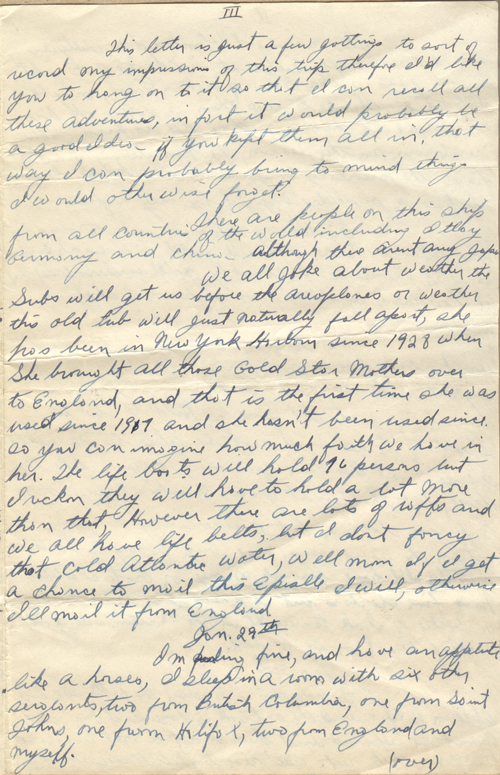 III
This letter is just a few jottings to sort of
record my impressions of this trip therefore I'd like
you to hang on to it so that I can recall all
these adventures, in fact it would probably be
a good idea if you kept them all in, that
way I can probably bring to mind things
I would otherwise forget.
There are people on this ship
from all countries of the world including Italy
Germany and china although there arent any Japs
We all joke about weather the
Subs will get us before the aeroplanes or weather
this old tub will just naturally fall apart, she
has been in New York Harbour since 1928 when
She brought all those Gold Star Mothers over
to England, and that is the first time she was
used since 1917 and she hasn't been used since.
so you can imagine how much faith we have in
her. The life boats will hold 76 persons but
I reckon they will have to hold a lot more
than that, However there are lots of rafts and
we all have life belts, but I dont fancy
that cold Atlantic water, well mom if I get
a chance to mail this Epistle I will, otherwise
I'll mail it from England
Jan. 29th
I'm feeling fine, and have an appetite
like a horses, I sleep in a room with six other
sergeants, two from British Columbia, one from Saint
Johns, one from Halifax, two from England and
myself.
(over)